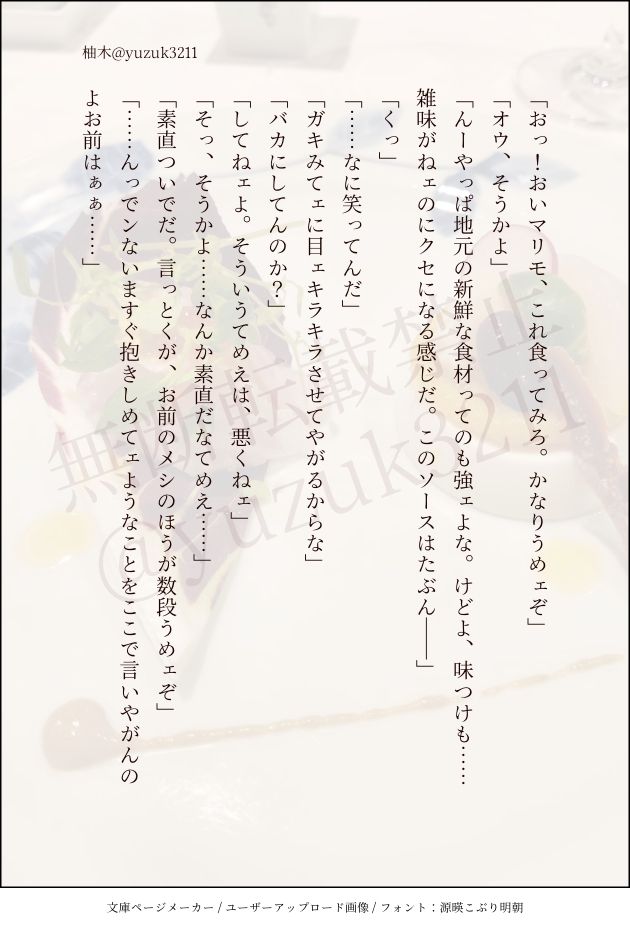 柚木@yuzuk3211
「おっ！おいマリモ、これ食ってみろ。かなりうめェぞ」
「オウ、そうかよ」
「んーやっぱ地元の新鮮な食材ってのも強ェよな。けどよ、味つけも……
雑味がねェのにクセになる感じだ。このソースはたぶん――」
「くっ」
「……なに笑ってんだ」
「ガキみてェに目ェキラキラさせてやがるからな」
「バカにしてんのか？」
「してねェよ。そういうてめえは、悪くねェ」
「そっ、そうかよ……なんか素直だなてめえ……」
「素直ついでだ。言っとくが、お前のメシのほうが数段うめェぞ」
「……んっでンないますぐ抱きしめてェようなことをここで言いやがんの
よお前はぁぁ……」
無断転載禁止
@yuzuk3211
文庫ページメーカー / ユーザーアップロード画像 / フォント：源暎こぶり明朝